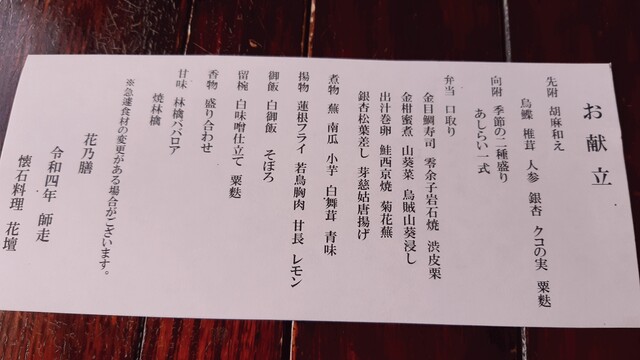 お献立
先附 胡麻和え
烏鰹 椎茸 人参 銀杏 クコの実 粟麩
向附 季節の二種盛り
あしらい一式
弁当 口取り
金目鯛寿司 零余子岩石焼 渋皮栗
金柑蜜煮 山葵菜 烏賊山葵浸し
出汁巻卵 鮭西京焼 菊花蕪
銀杏松葉差し 芽慈姑唐揚げ
煮物 蕪 南瓜 小芋 白舞茸 青味
揚物 蓮根フライ 若鳥胸肉 甘長 レモン
御飯 白御飯 そぼろ
留椀 白味噌仕立て 粟麩
香物 盛り合わせ
甘味 林檎ババロア
焼林檎
※急遽食材の変更がある場合がございます。
花乃膳
令和四年 師走
懐石料理 花壇